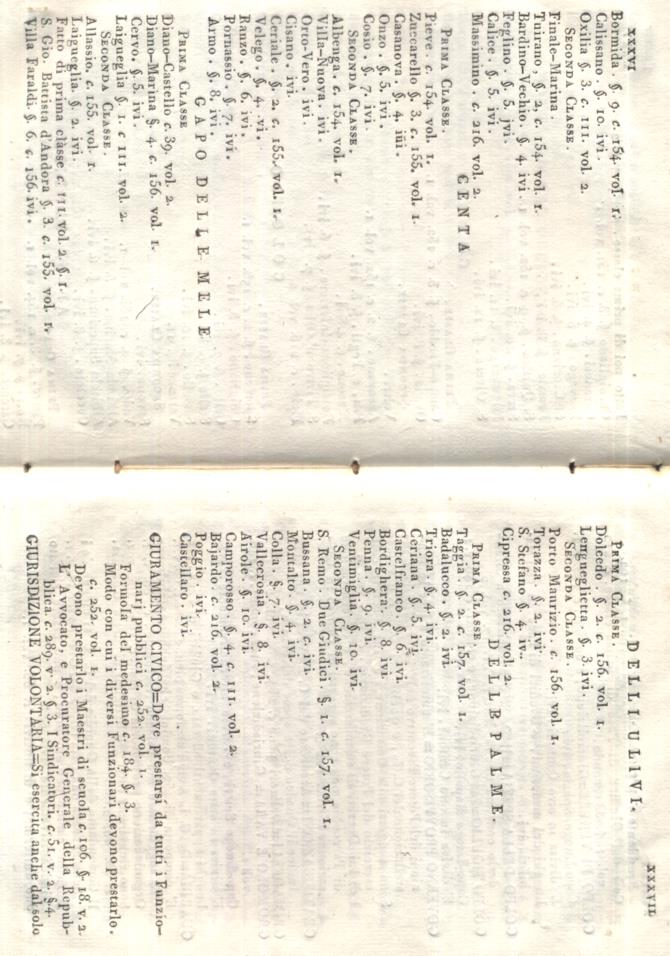 XXXVI
Bormida. §. 9. c. 154. vol. 1.
Calissano. §. 10. ivi.
Oxilia §. 3. c. 111. vol. 2.
SECONDA CLASSE.
Finale-Marina
Tuirano, §. 2, c. 154. vol. 1.
Bardino-Vechio. §. 4. ivi
Feglino. §. 5. ivi.
Calice. §. 5. ivi.
Massimino. c. 216. vol. 2.
CENTA
PRIMA CLASSE.
Pieve. c. 154. vol. 1.
Zuccarello §. 3. c. 155. vol. 1.
Casanova. §. 4. ivi.
Onzo. §. 5. ivi.
Cosio. §. 7. ivi.
SECONDA CLASSE.
Albenga. c. 154. vol. 1.
Villa-Nuova. ivi.
Orto-Vero. ivi.
Cisano. ivi.
Ceriale. §. 2. c. 155. vol. 1.
Velego. §. 4. vi.
Ranzo. §. 6. ivi.
Pornassio. §. 7. ivi.
Armo. §. 8. ivi.
CAPO DELLE MELE
PRIMA CLASSE
Diano-Castello c. 39. vol. 2.
Diano-Marina §. 4. c. 156. vol. 1.
Cervo. §. 5. ivi.
Laigueglia §. 1. c 111. vol. 2.
SECONDA CLASSE.
Allassio. c. 155. vol. 1.
Fatto di prima classe c. 111. vol. 2. §. 1.
Laigueglia. §. 2. ivi.
S. Gio. Battista d'Andora §. 3. c. 155. vol. 1.
Villa Faraldi. §. 6. c. 156. ivi.
XXXVII.
DELLI ULIVI.
PRIMA CLASSE.
Dolcedo. §. 2. c. 156. vol. 1.
Lenguegliettа. §. 3. ivi.
SECONDA CLASSE.
Porto Maurizio. c. 156. vol. 1.
Torazza. §. 2. ivi.
S. Stefano §. 4. iv..
Cipressa c. 216. vol. 2.
DELLE PALME.
PRIMA CLASSE.
Taggia. §. 2. c. 157. vol. 1.
Badalucco. §. 2. ivi.
Triora. §. 4. ivi.
Ceriana. §. 5. ivi.
Castelfranco. §. 6. ivi.
Bordighera. §. 8. ivi.
Penna §. 9. ivi.
Ventimiglia. §. 10. ivi.
SECONDA CLASSE.
S. Remo. Due Giudici. §. 1. c. 157. vol. 1.
Bussana. §. 2. c. ivi.
Montalto. §. 4. ivi.
Colla. §. 7. ivi.
Vallecrosia. §. 8. ivi.
Airole. §. 10. ivi.
Camporosso. §. 4. c. 111. vol. 2.
Bajardo. c. 216. vol. 2.
Poggio. ivi.
Castellaro. ivi.
GIURAMENTO CIVICO=Deve prestarsi da tutti i Funzio-
narj pubblici c. 252. vol. 1.
Formola del medesimo c. 184. §. 3.
Modo con cui i diversi Funzionari devono prestarlo.
c. 252. vol. 1.
Devono prestarlo i Maestri di scuola c. 106. §. 18. v. 2.
L' Avvocato, e Procuratore Generale della Repub-
blica. c. 289. v. 2. §. 3. I Sindicatori. c. 51. v. 2. §. 4.
GIURISDIZIONE VOLONTARIA=Si esercita anche dal solo